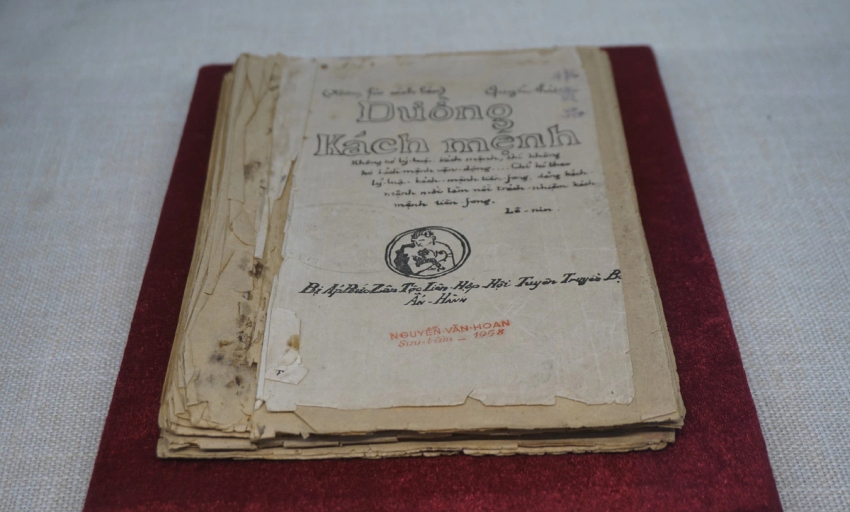 Duờng
Kách mệnh
Không có lý luận kách mệnh, thì không
có kách mệnh vận động... Chỉ có theo
lý luận kách mệnh tiên fong, đảng kách
mệnh mới làm nổi trách nhiệm kách
mệnh tiên fong.
Lê-nin
Bị Áp Bức Zân Tộc Liên Hợp Hội Tuyên Truyền Bộ
Ấn-Hành
NGUYỄN-VĂN-HOAN
Sưu-tầm - 1958